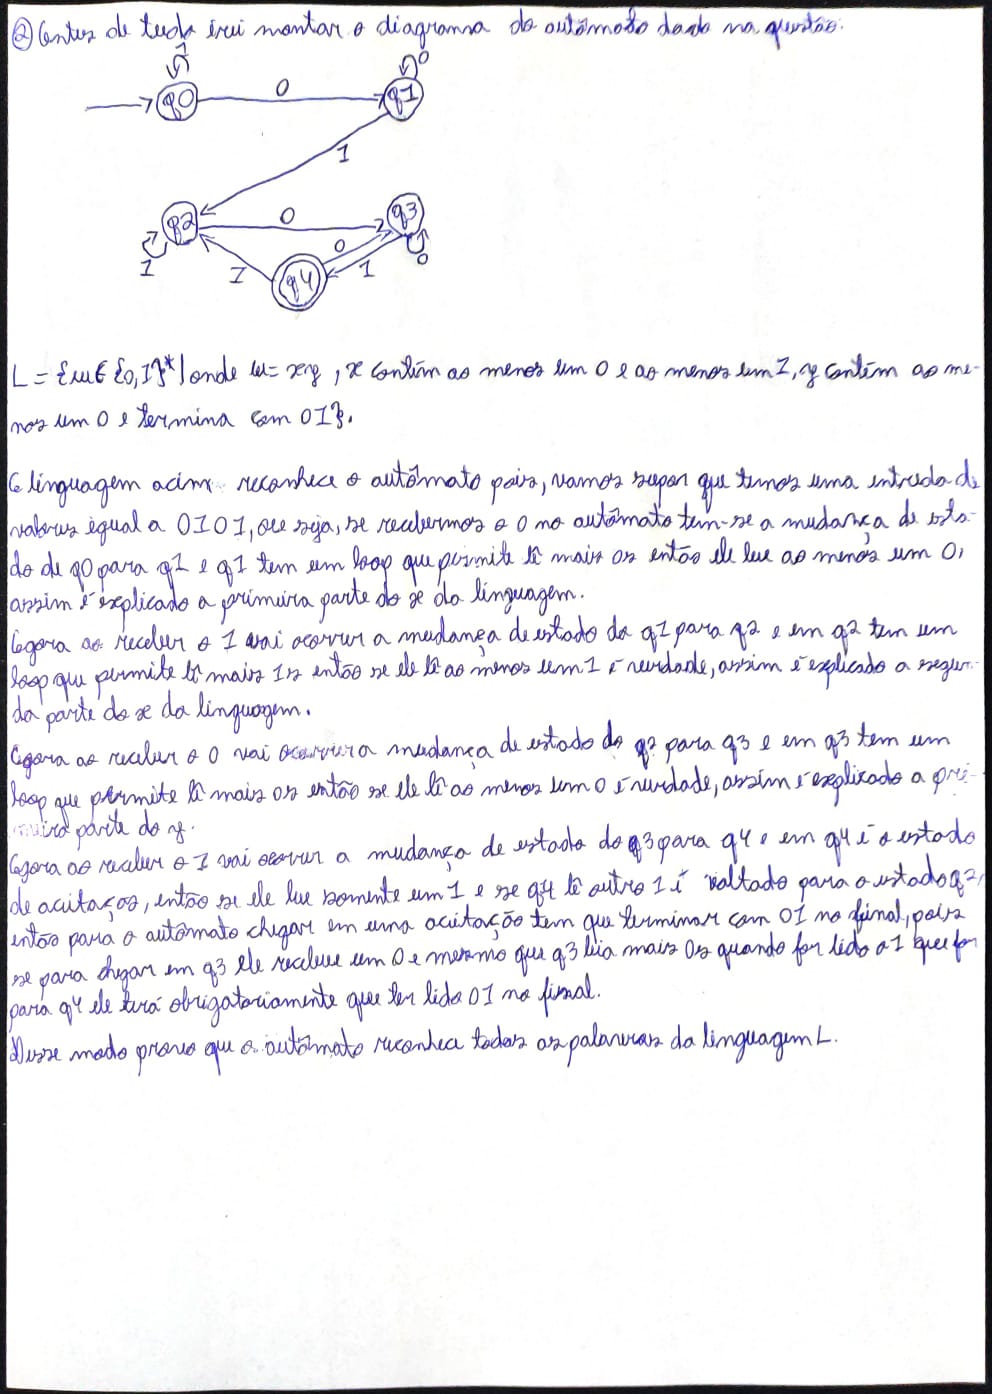 ② Antes de tudo irei montar o diagrama do autômato dado na questão.
1 0
q0 0 q1
1
q2 0 q3
1 1 q4 0 1 0
L = {w ∈ {0,1}* | onde w = xy, x contém ao menos um 0 e ao menos um 1, y contém ao me-
nos um 0 e termina com 01}.
A linguagem acima reconhece o autômato pois, vamos supor que temos uma entrada de
valores igual a 0101, ou seja, se recebermos o 0 no autômato tem-se a mudança de esta-
do de q0 para q1 e q1 tem um loop que permite lê mais 0s então ele leu ao menos um 0,
assim é explicado a primeira parte do x da linguagem.
Agora ao receber o 1 vai ocorrer a mudança de estado do q1 para q2 e em q2 tem um
loop que permite lê mais 1s então se ele lê ao menos um 1 é verdade, assim é explicado a segun-
da parte do x da linguagem.
Agora ao receber o 0 vai ocorrer a mudança de estado do q2 para q3 e em q3 tem um
loop que permite lê mais 0s então se ele lê ao menos um 0 é verdade, assim é explicado a pri-
meira parte do y.
Agora ao receber o 1 vai ocorrer a mudança de estado do q3 para q4 e em q4 é o estado
de então se ele leu somente um 1 e se q4 lê outro 1 é voltado para o estado q2,
então para o autômato chegar em uma aceitação tem que terminar com 01 no final, pois
se para chegar em q3 ele recebeu um 0 e mesmo que q3 leia mais 0s quando for lido o 1 que for
para q4 ele terá obrigatoriamente que ter lido 01 no final.
Desse modo provo que o autômato reconhece todas as palavras da linguagem L.